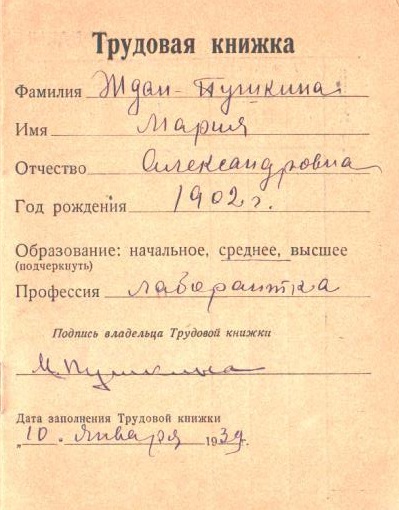 Трудовая книжка
Фамилия Ждан-Пушкина
Имя Мария
Отчество Александровна
Год рождения 1902 г.
Образование: начальное, среднее, высшее
(подчеркнуть)
Профессия лаборантка
Подпись владельца Трудовой книжки
М. Пушкина
Дата заполнения Трудовой книжки
„10. января 1939г.